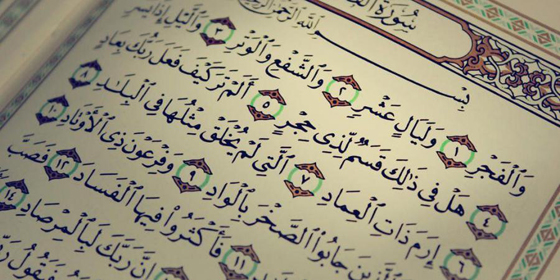 سُورَةُ
بِسْمِ ٱللَّهِ ٱلرَّحْمَٰنِ ٱلرَّحِيمِ
وَٱلْفَجْرِ ١ وَلَيَالٍ عَشْرٍ ٢ وَٱلشَّفْعِ وَٱلْوَتْرِ ٣ وَٱلَّيْلِ إِذَا يَسْرِ
٤ هَلْ فِى ذَٰلِكَ قَسَمٌ لِّذِى حِجْرٍ ٥ أَلَمْ تَرَ كَيْفَ فَعَلَ رَبُّكَ بِعَادٍ
٦ إِرَمَ ذَاتِ ٱلْعِمَادِ ٧ ٱلَّتِى لَمْ يُخْلَقْ مِثْلُهَا فِى ٱلْبِلَٰدِ ٨
ٱلَّذِينَ جَابُوا۟ ٱلصَّخْرَ بِٱلْوَادِ ٩ وَفِرْعَوْنَ ذِى ٱلْأَوْتَادِ ١٠
١١ فَأَكْثَرُوا۟ فِيهَا ٱلْفَسَادَ ١٢ فَصَبَّ
إِنَّ رَبَّكَ لَبِٱلْمِرْصَادِ ١٤
فَيَقُولُ